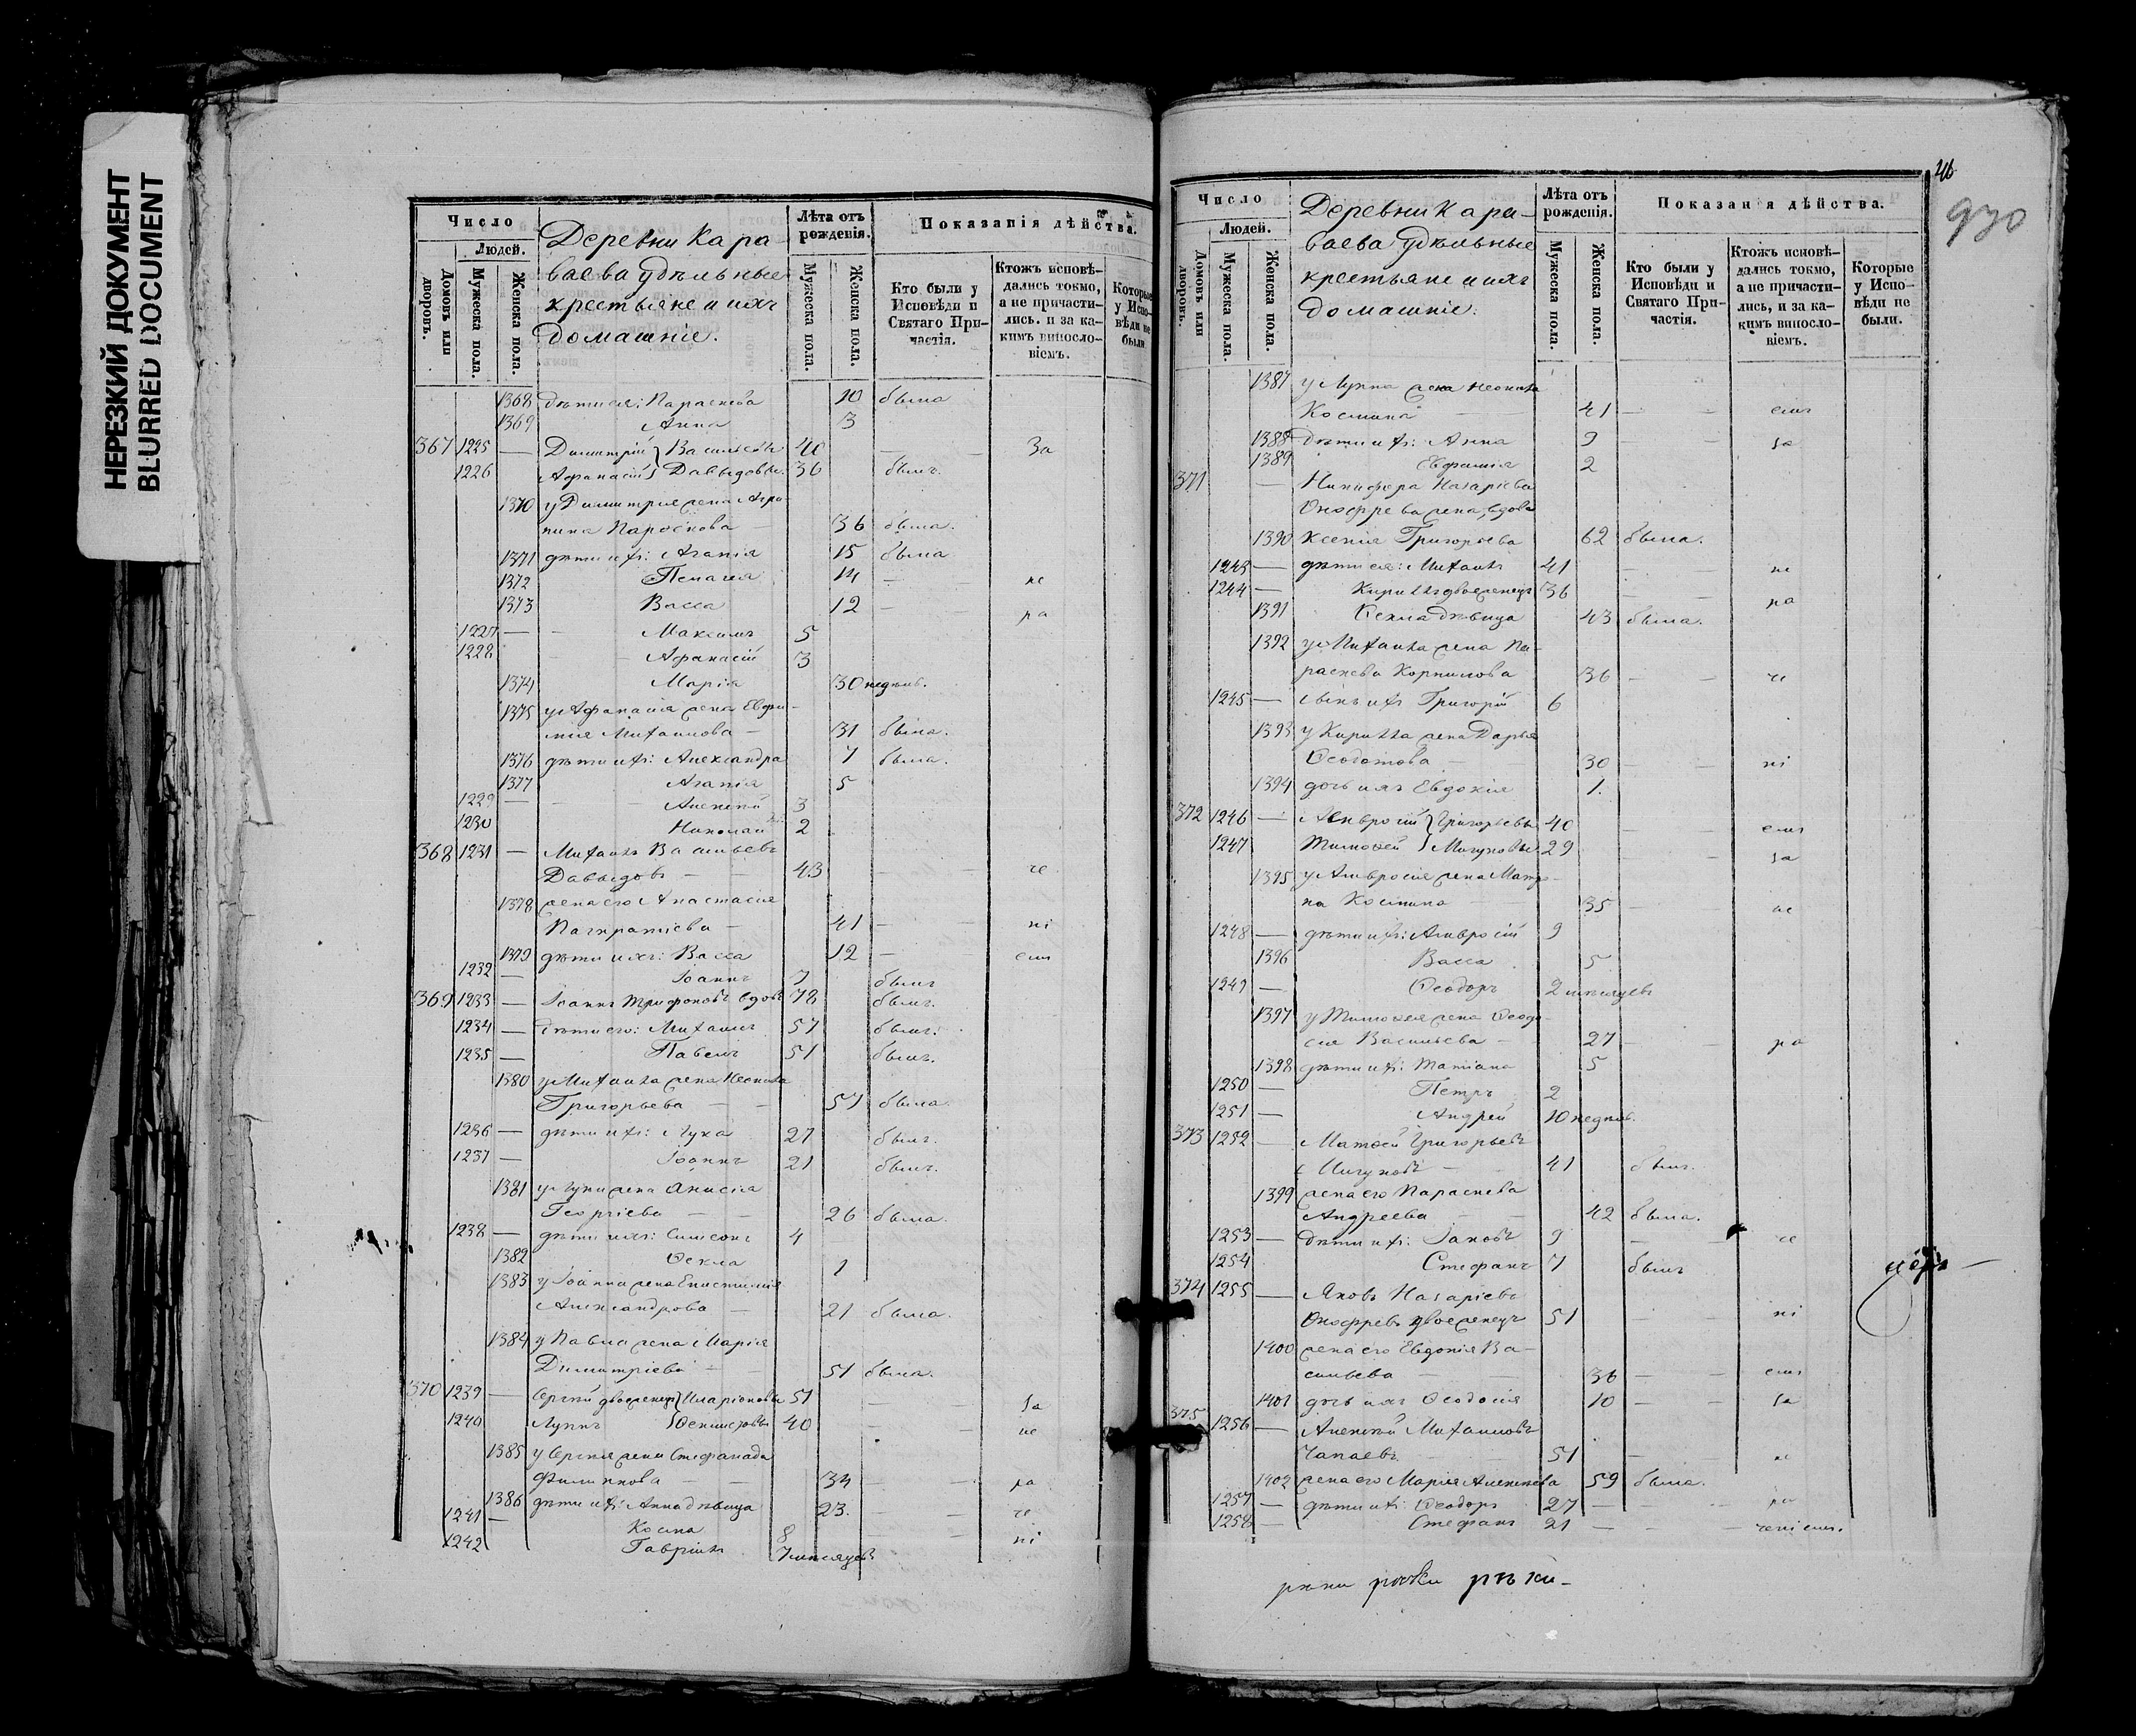 НЕРЕЗКИЙ ДОКУМЕНТ
BLURRED DOCUMENT
Число
Людей.
Домовъ или дворовъ.
Мужеска пола.
Женска пола.
Деревни Кара-
ваева удѣльные
крестьяне и ихъ
домашніе.
Лѣта отъ рожденія.
Мужеска пола.
Женска пола.
Показанія дѣйства.
Кто были у Исповѣди и Святаго При-частія.
Ктожъ исповѣ-дались токмо, а не причасти-лись. и за ка-кимъ винносло-віемъ.
Которые у Испо-вѣди не были
1368 дѣти ея: Параскева 10 была
1369 Анна 3
367 1225 — Димитрій } Васильевы 40 — — За
1226 Афанасій } Давыдовы 36 былъ.
1370 у Димитрія жена Агри-
пина 36 была.
1371 дѣти ихъ: Агапія 15 была
1372 Пелагея 14 — не
1373 Васса 12 — ра
1227 — Максимъ 5
1228 Афанасій 3
1374 Марія 30 недѣль.
1375 у Афанасія жена Евфи-
мія Михаилова — 31 была.
1376 дѣти ихъ: Александра 7 была.
1377 Агапія 5
1229 — Алексій 3
1230 Николай 2
368 1231 — Михаилъ Васильевъ
Давыдовъ — — 43 — — че
1378 жена его Анастасія
Панкратіева — 41 — ні
1379 дѣти ихъ: Васса 12 — емъ
1232 — Іоаннъ 7 былъ
369 1233 — Іоаннъ Трифоновъ вдовъ 78 былъ.
1234 — дѣти его: Михаилъ 57 былъ.
1235 — Павелъ 51 былъ.
1380 у Михаила жена Неонила
Григорьева — — 57 была.
1236 — дѣти ихъ: Лука 27 былъ.
1237 — Іоаннъ 21 былъ.
1381 у Луки жена Анисія
Георгіева — — 26 была.
1238 — дѣти ихъ: Симеонъ 4
1382 Ѳекла 1
1383 у Іоанна жена Епистимія
Александрова — 21 была.
1384 у Павла жена Марія
Димитріева — 51 была.
370 1239 — Сергій двоеженецъ } Иларіоновы 51 — за
1240 Луппъ 40 — — не
1385 у Сергія жена Стефанида
Филиппова — — 34 — — ра
1386 дѣти ихъ: Анна дѣвица 23. — — че
1241 — Косма 8 — — ні
1242 Гавріилъ 7 мѣсяцевъ
46
930
Число
Людей.
Домовъ или дворовъ.
Мужеска пола.
Женска пола.
Деревни Кара-
ваева удѣльные
крестьяне и ихъ
домашніе.
Лѣта отъ рожденія.
Мужеска пола.
Женска пола.
Показанія дѣйства.
Кто были у Исповѣди и Святаго При-частія.
Ктожъ исповѣ-дались токмо, а не причасти-лись, и за ка-кимъ винносло-віемъ.
Которые у Испо-вѣди не были.
1387 у Луппа жена Неонила
Космина — 41 — — емъ
1388 дѣти ихъ: Анна 9 — — за
1389 Евфимія 2
371 — Никифора Назаріева
Онофрева жена, вдова
1390 Ксенія Григорьева 62 была.
1243 — дѣти ея: Михаилъ 41 — — не
1244 — Кириллъ двоеженецъ 36 — — ра
1391 Ѳекла дѣвица 43 была.
1392 у Михаила жена Па-
раскева Корнилова 36 — — че
1245 — сынъ ихъ Григорій 6
1393 у Кирилла жена Дарья
Ѳеодотова — 30 — — ні
1394 дочь ихъ Евдокія 1.
372 1246 — Амвросій } Григорьевы 40 — — емъ
1247 Тимоѳей } Мигуновы 29 — — за
1395 у Амвросія жена Матро-
на Космина — 35 — — не
1248 — дѣти ихъ: Амвросій 9
1396 Васса 5
1249 — Ѳеодоръ 2 мѣсяцевъ
1397 у Тимоѳея жена Ѳеодо-
сія Васильева — 27 — — ра
1398 дѣти ихъ: Татіана 5
1250 — Петръ 2
1251 — Андрей 10 недѣль.
373 1252 — Матѳей Григорьевъ
Мигуновъ — 41 былъ.
1399 жена его Параскева
Андреева — — 42 была.
1253 — дѣти ихъ: Іаковъ 9 — — че
1254 Стефанъ 7 былъ
374 1255 — Яковъ Назаріевъ
Онофревъ двоеженецъ 51 — ні
1400 жена его Евдокія Ва-
сильева — — 36 — — емъ
1401 дочь ихъ Ѳеодосія 10 — — за
375 1256 — Алексій Михаиловъ
Чапаевъ — 51 — — не
1402 жена его Марія Алексіева 59 была.
1257 — дѣти ихъ: Ѳеодоръ 27 — — ра
1258 — Стефанъ 21 — — ченіемъ.